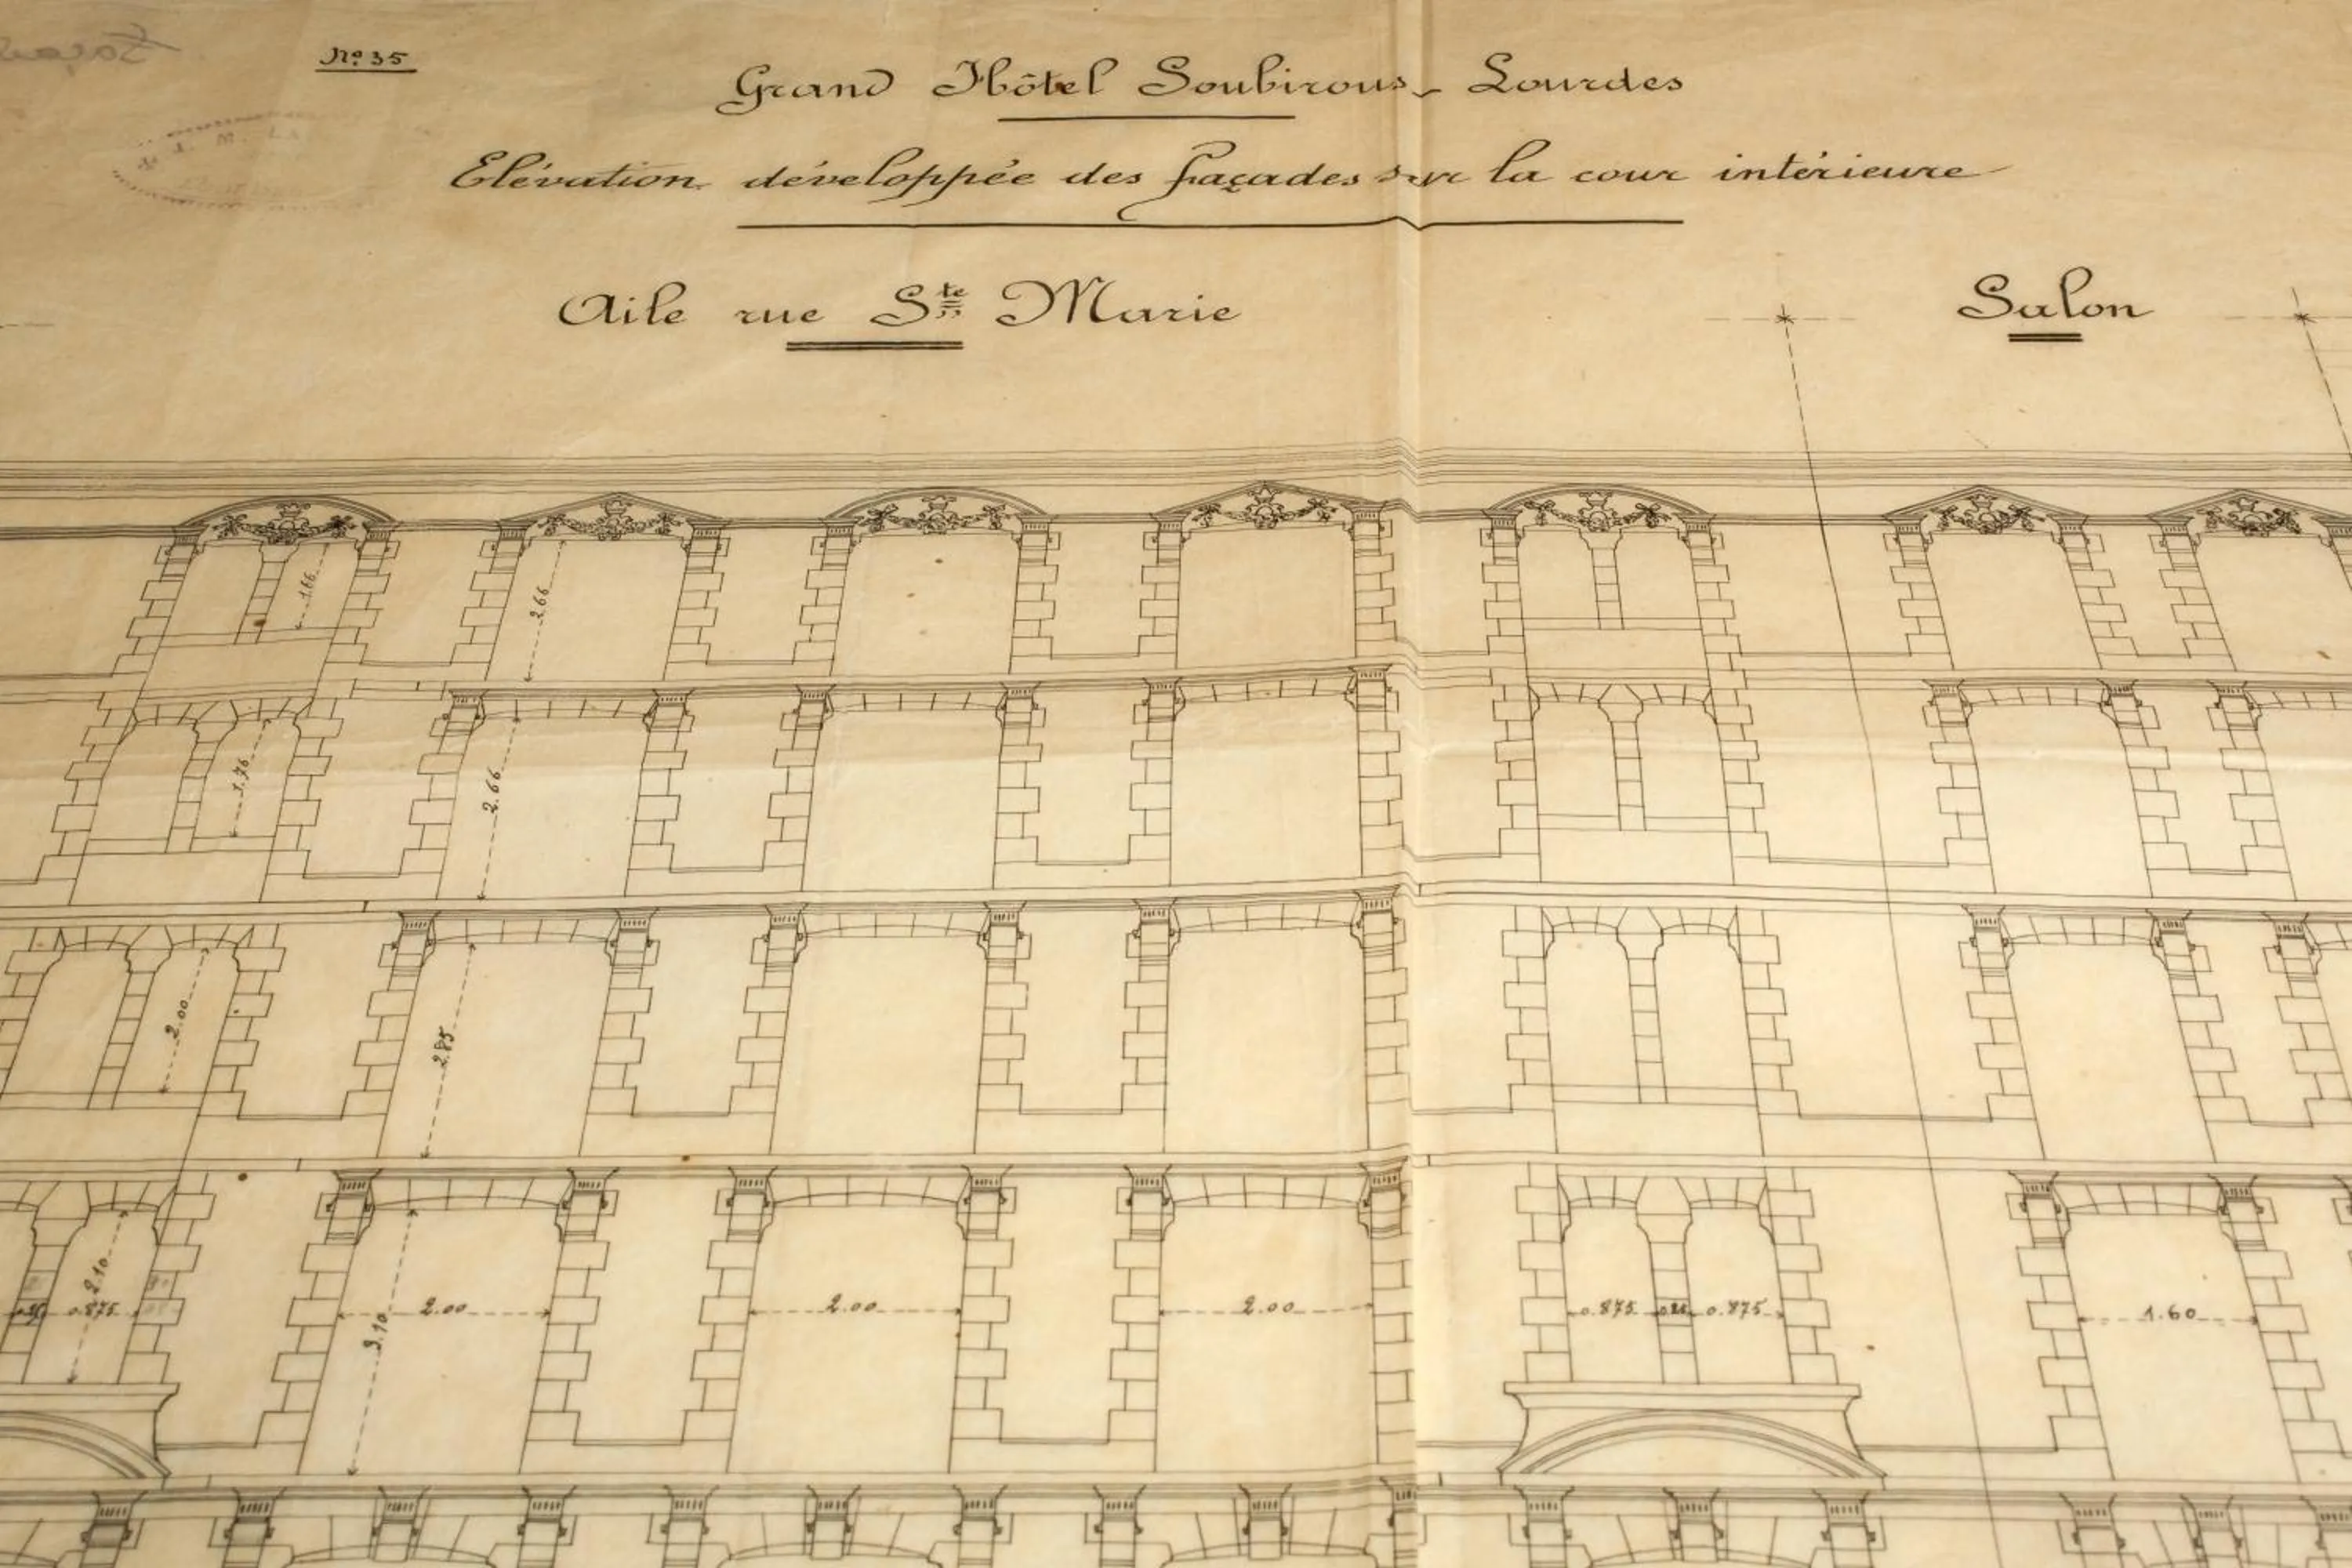 No 35
Grand Hôtel Soubirous - Lourdes
Elévation développée des façades sur la cour intérieure
Aile rue Ste Marie
Salon
1.66
2.66
1.76
2.66
2.00
2.85
2.10
0.875
3.10
2.00
2.00
2.00
0.875
0.875
1.60